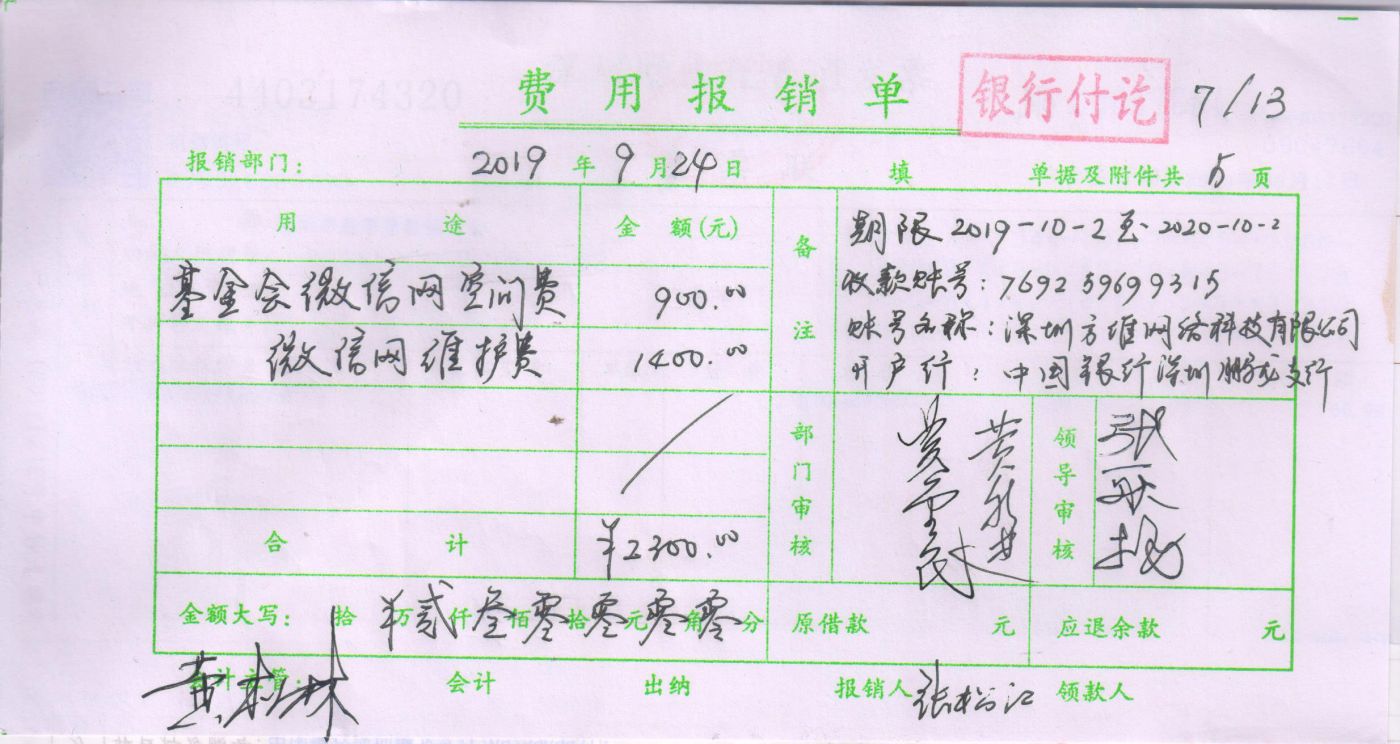 费用报销单 银行付讫 7/13
4403174320
报销部门: 2019年9月24日 填 单据及附件共5页
用途 金额(元) 备注 期限 2019-10-2至2020-10-2
基金会微信网空间费 900.00 收款账号:769259699315
账号名称:深圳方维网络科技有限公司
微信网维护费 1400.00 开户行:中国银行深圳鹏龙支行
部门审核 领导审核
合计 ¥2300.00
金额大写: 拾¥万贰仟叁佰零拾零元零角零分 原借款 元 应退余款 元
会计主管: 黄松林 会计 出纳 报销人 张松江 领款人